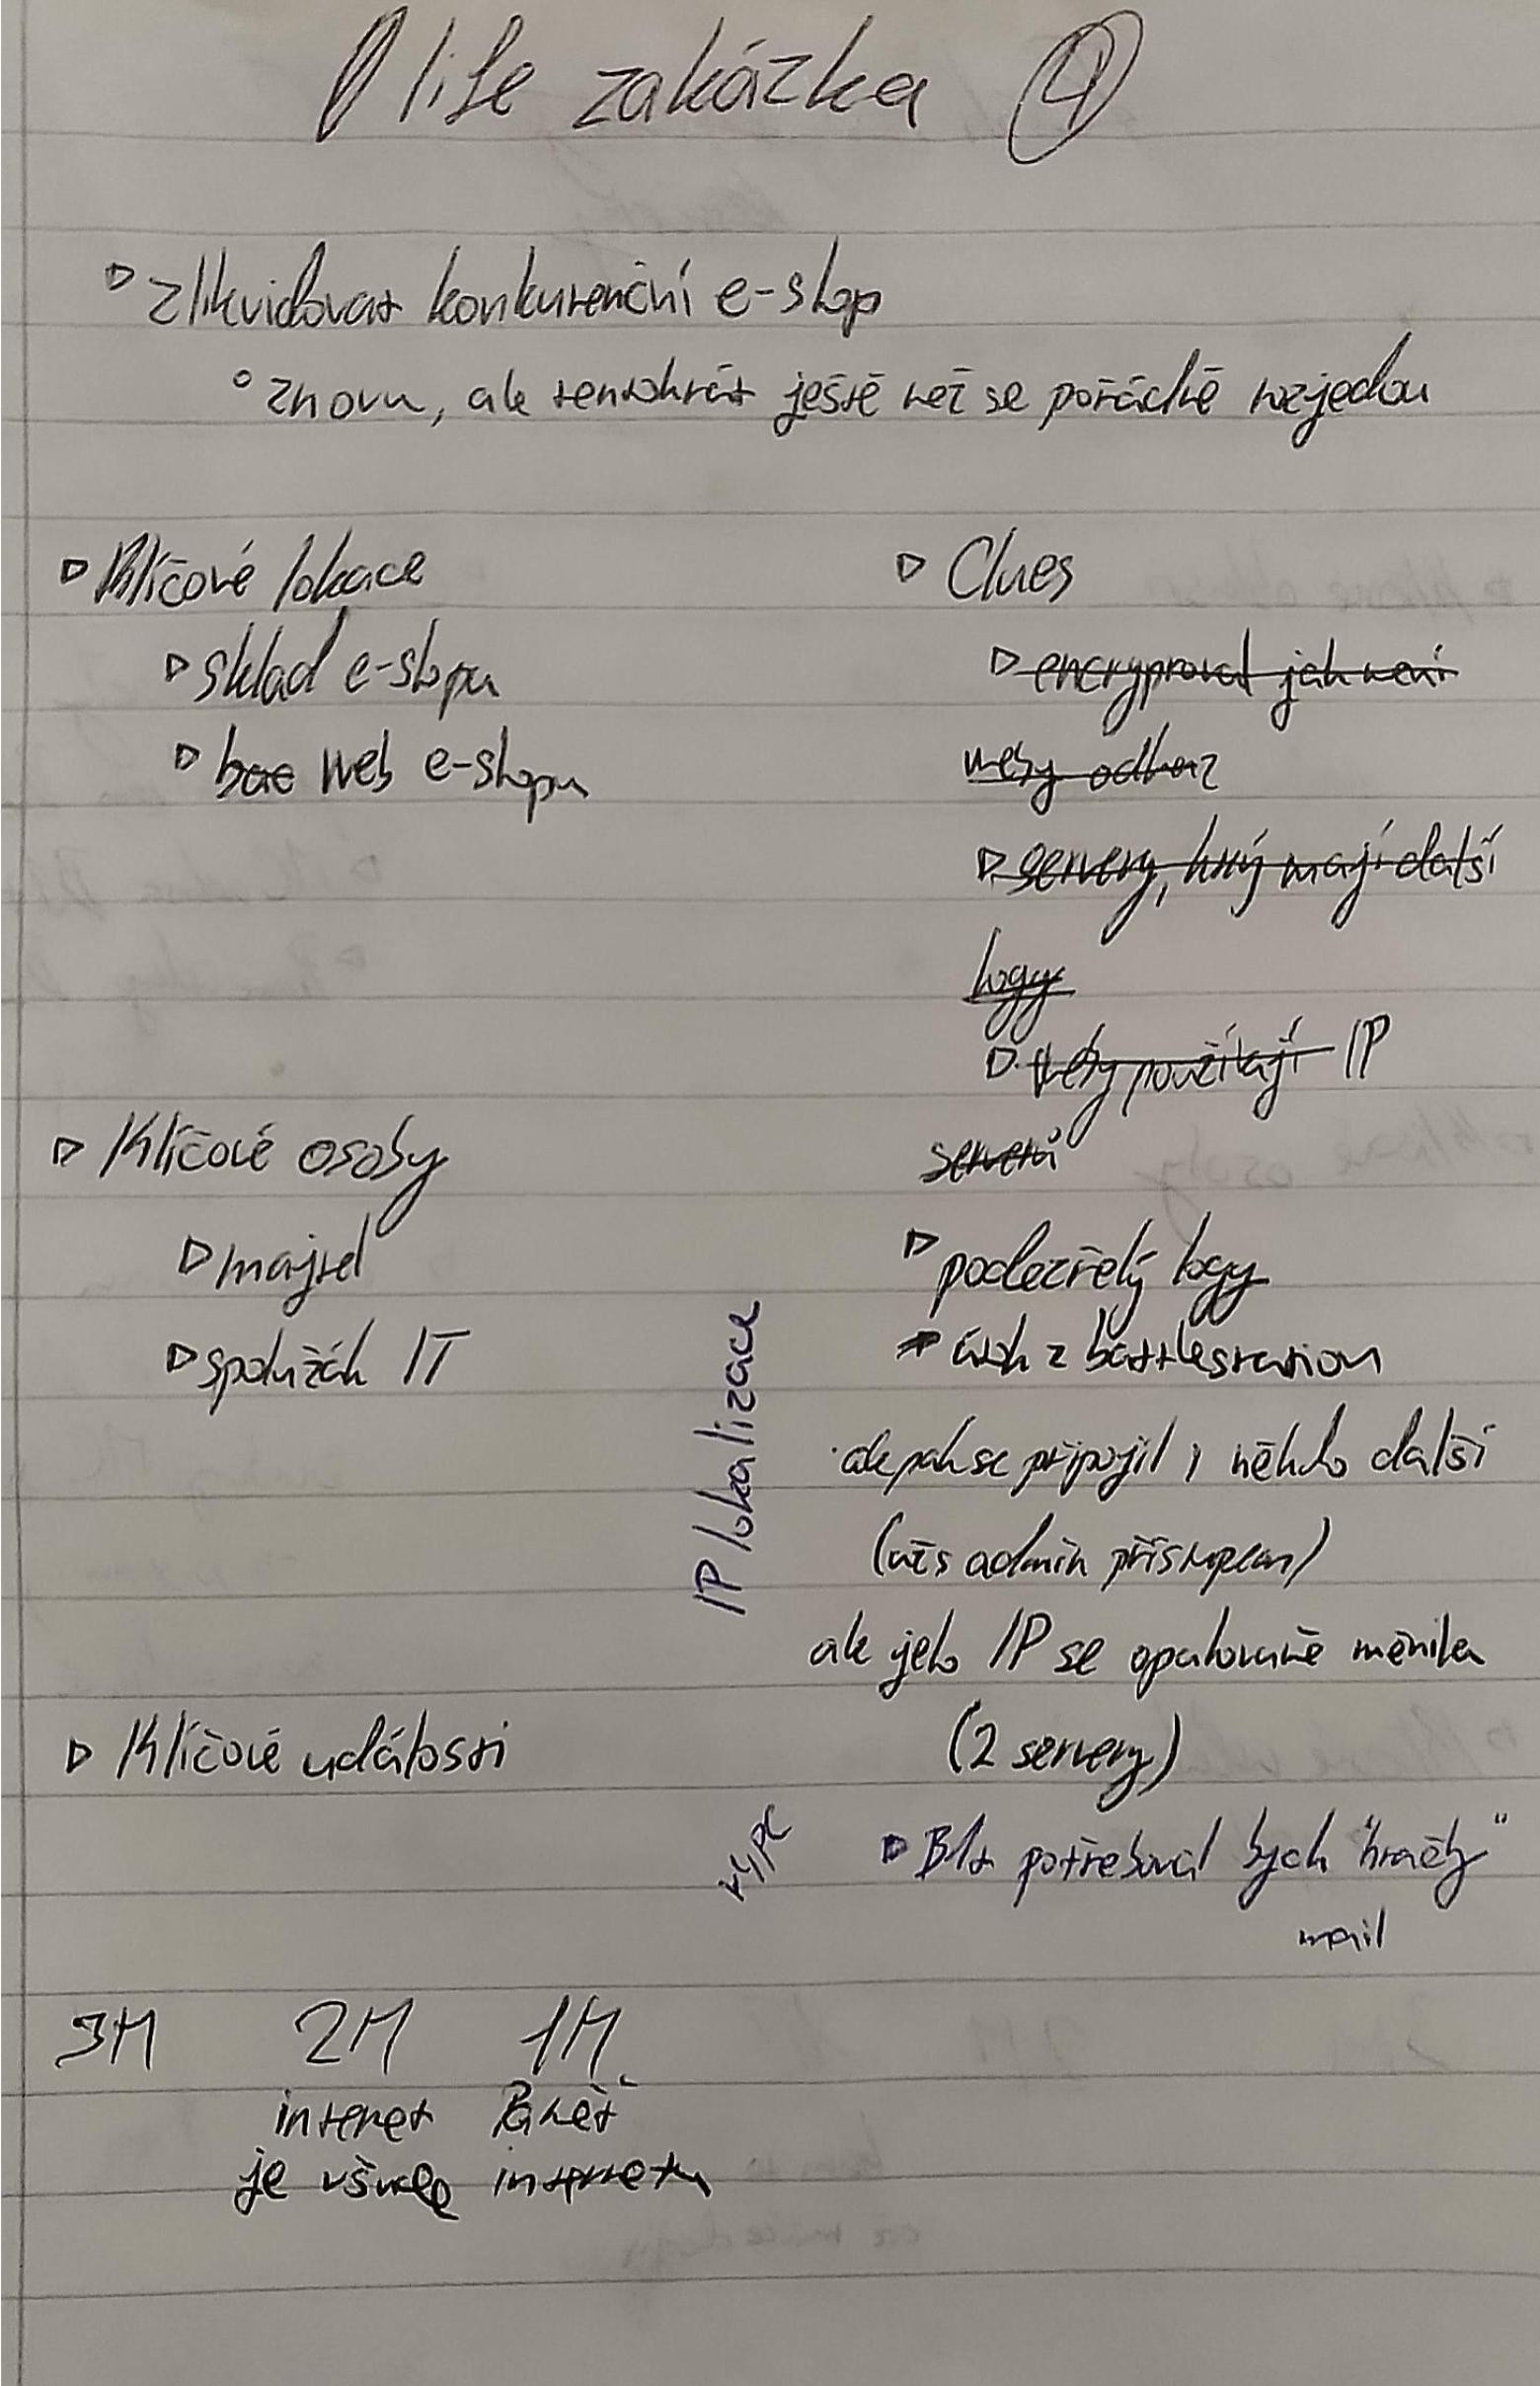 life zakázka 4
zlikvidovat konkurenční e-shop
znovu, ale tentokrát ještě než se pořádně rozjedou
Klíčové lokace
sklad e-shopu
bac web e-shopu
Klíčové osoby
majitel
spolužák IT
Klíčové události
Clues
encryprovat jak není
weby odkaz
servery, kný mají další
logy
weby používají IP
serverů
podezřelý logy
útok z battlestation
ale pak se připojil i někdo další
(už s admin přístupem)
ale jeho IP se opakovaně měnila
(2 servery)
potřeboval bych "hračky"
mail
IP lokalizace
3M 2M 1M
internet
je všude internetu